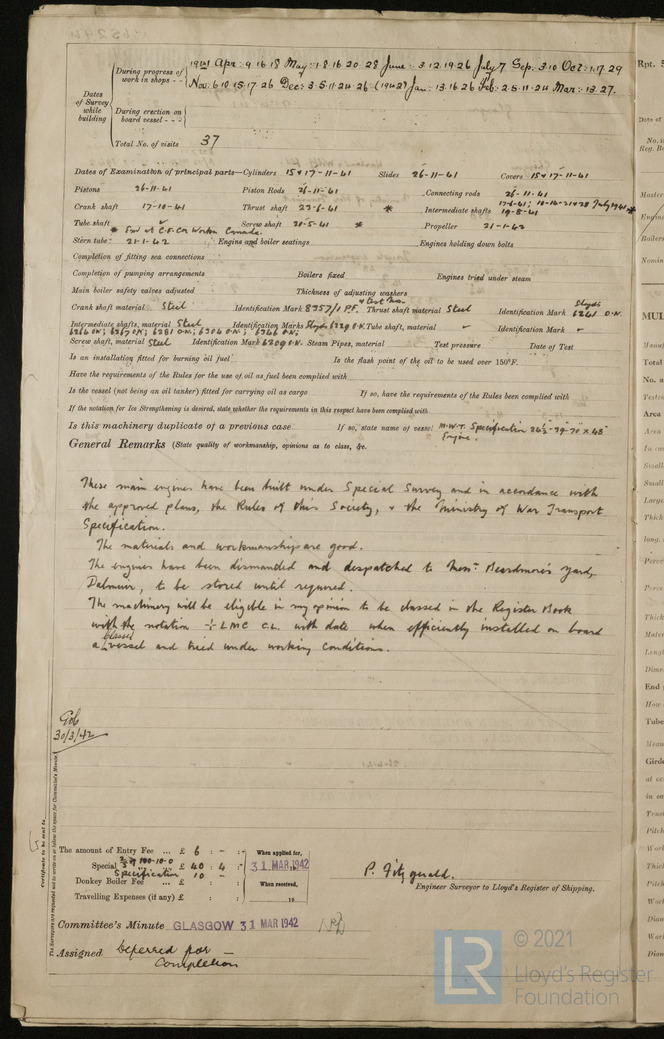 Dates of Survey while building
During progress of work in shops - - 1941 Apr: 9.16.18 May: 1.8.16.20.28 June: 3.12.19.26 July 7 Sep: 3.10 Oct: 1.17.29
Nov: 6.10.15.17.26 Dec: 3.5.11.24.26 (1942) Jan: 13.16.26 Feb: 2.5.11.24 Mar: 13.27.
During erection on board vessel - - -
Total No. of visits 37
Dates of Examination of principal parts—Cylinders 15 & 17-11-41 Slides 26-11-41 Covers 15 & 17-11-41
Pistons 26-11-41 Piston Rods 26-11-41 Connecting rods 26-11-41
Crank shaft 17-10-41 Thrust shaft 23-6-41 * Intermediate shafts 19-8-41
Tube shaft Screw shaft 20-5-41 * Propeller 21-1-42
Stern tube 21-1-42 Engine and boiler seatings Engines holding down bolts
Completion of fitting sea connections
Completion of pumping arrangements Boilers fixed Engines tried under steam
Main boiler safety valves adjusted Thickness of adjusting washers
Crank shaft material Steel Identification Mark 8957/1 P.F. Thrust shaft material Steel Identification Mark Lloyds 6241 O.N.
Intermediate shafts, material Steel Identification Marks Lloyds 6290.N. Tube shaft, material - Identification Mark -
Screw shaft, material Steel Identification Mark 6209 O.N. Steam Pipes, material Test pressure Date of Test
Is an installation fitted for burning oil fuel Is the flash point of the oil to be used over 150°F.
Have the requirements of the Rules for the use of oil as fuel been complied with
Is the vessel (not being an oil tanker) fitted for carrying oil as cargo If so, have the requirements of the Rules been complied with
If the notation for Ice Strengthening is desired, state whether the requirements in this respect have been complied with
Is this machinery duplicate of a previous case If so, state name of vessel M.W.T. Specification 24½-39-70 x 48" Engine.
General Remarks (State quality of workmanship, opinions as to class, &c.
These main engines have been built under Special Survey and in accordance with
the approved plans, the Rules of this Society, & the Ministry of War Transport
Specification.
The materials and workmanship are good.
The engines have been dismantled and despatched to Messrs. Beardmore's Yard,
Dalmuir, to be stored until required.
The machinery will be eligible in my opinion to be classed in the Register Book
with the notation + LMC C.L. with date when efficiently installed on board
a classed vessel and tried under working conditions.
30/3/42
Certificate to be sent to
The Surveyors are requested not to write on or below the space for Committee's Minute.
The amount of Entry Fee ... £ 6 : - :
Special £ 40 : 4 :
Specification 10 -
Donkey Boiler Fee ... £ : :
Travelling Expenses (if any) £ : :
When applied for,
31 MAR 1942
When received,
19
P. Fitzgerald.
Engineer Surveyor to Lloyd's Register of Shipping.
Committee's Minute GLASGOW 31 MAR 1942
Assigned Deferred for
Completion
LR
© 2021
Lloyd's Register
Foundation